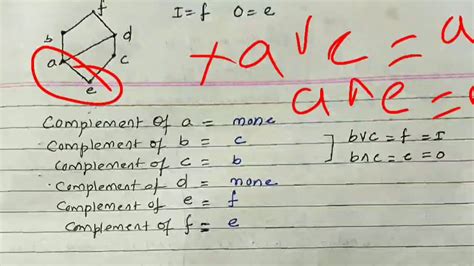 f
I = f O = e
b
d
a
c
e
+ a v c = a
a ^ e =
Complement of a = none
Complement of b = c
Complement of c = b
Complement of d = none
Complement of e = f
Complement of f = e
bvc = f = I
b^c = e = 0